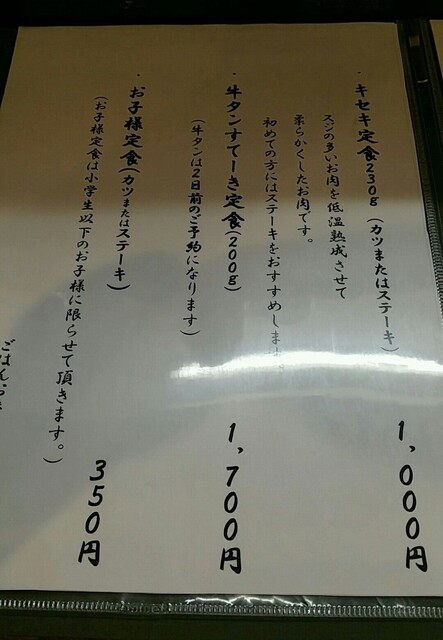 ・キセキ定食230g(カツまたはステーキ) 1,000円
スジの多いお肉を低温熟成させて
柔らかくしたお肉です。
初めての方にはステーキをおすすめします。
・牛タンすてーき定食(200g) 1,700円
(牛タンは2日前のご予約になります)
・お子様定食(カツまたはステーキ) 350円
(お子様定食は小学生以下のお子様に限らせて頂きます。)
ごはん